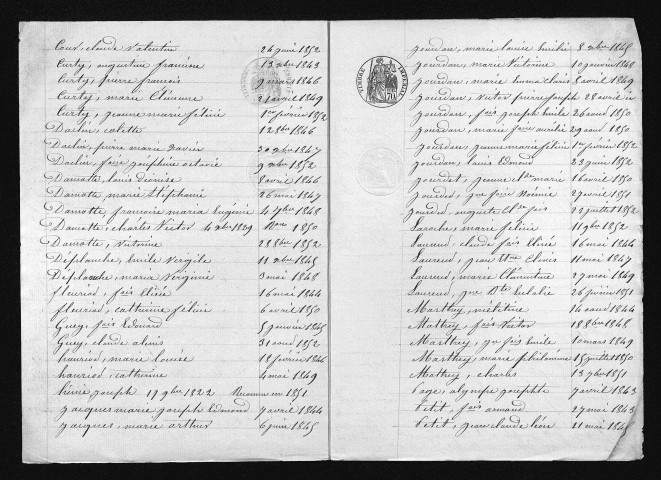 Cour, claude Valentin 24 juin 1852
Curty, augustine francine 13 xbre 1843
Curty, pierre francois 9 mai 1846
Curty, marie Clémence 21 avril 1849
Curty, jeanne marie félicie 1er février 1852
Daclin, colette 12 8bre 1846
Daclin, pierre marie xavier 30 9bre 1847
Daclin, foise joséphine octavie 9 xbre 1852
Damotte, louis Dionise 8 avril 1846
Damotte, marie Stéphanie 26 mai 1847
Damotte, francois maria Eugénie 4 7bre 1848
Damotte, charles Victor 4 xbre 1829 1850
Damotte, Victorine 28 8bre 1852
Déplanche, émile Vergile 11 xbre 1845
Déplanche, maria Virginie 3 mai 1848
fleuriod, fois Elisée 16 mai 1844
fleuriod, catherine félicie 6 avril 1850
Guey, fois Edouard 5 janvier 1845
Guey, claude alexis 31 aout 1852
henriod, marie louise 18 février 1846
henriod, catherine 4 mai 1849
joseph 19 9bre 1822 Reconnu en 1851
jacques marie joseph Edmond 7 avril 1844
jacques, marie arthur 6 juin 1845
jourdan, marie louise émilie 8 xbre 1845
jourdan, marie Victorine 10 janvier 1848
jourdan, marie emma clavis 8 avril 1849
jourdan, Victor pierre joseph 28 avril
jourdan, fois joseph émile 26 aout 1850
jourdan, marie foise aurélie 29 aout 1850
jourdan jeanne marie félicie 1er février 1852
jourdan, louis Edmond 23 juin 1852
jourdet, jeanne marie 16 avril 1850
jourdod, foise Noémie 27 avril 1851
jourdod, auguste fois 22 juillet 1852
Laroche, marie félicie 11 9bre 1852
Laurent, claude fois Elisée 16 mai 1844
Laurent, clovis 11 mai 1847
Laurent, marie Clémentine 27 mai 1849
Laurent, Eulalie 26 février 1851
Marthey, mélitine 14 aout 1844
Mathey, fois Victor 18 8bre 1848
Marthey, fois émile 10 mars 1849
Marthey, marie philomène 15 juillet 1850
Mathey, charles 13 7bre 1851
Page, olympe josephte 7 avril 1843
Petit, fois armand 27 mai 1843
Petit, jean claude léon 11 mai
TIMBRE IMPERIAL
70